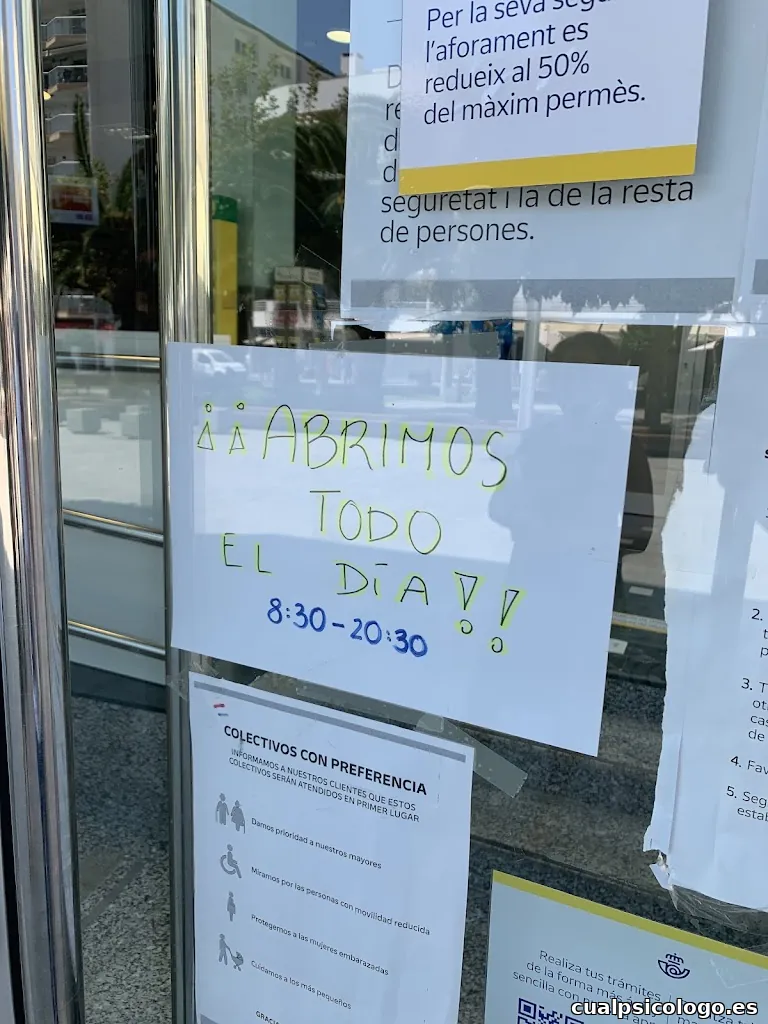 Per la seva
l'aforament es
redueix al 50%
del màxim permès.
seguretat i la de la resta
de persones.
¡¡ABRIMOS
TODO
EL DÍA!!
8:30-20:30
COLECTIVOS CON PREFERENCIA
INFORMAMOS A NUESTROS CLIENTES QUE ESTOS
COLECTIVOS SERÁN ATENDIDOS EN PRIMER LUGAR
Damos prioridad a nuestros mayores
Miramos por las personas con movilidad reducida
Protegemos a las mujeres embarazadas
Cuidamos a los más pequeños
2.
3.
4. Fav
5. Seg
estab
Realiza tus trámites
de la forma más
sencilla con
cualpsicologo.es